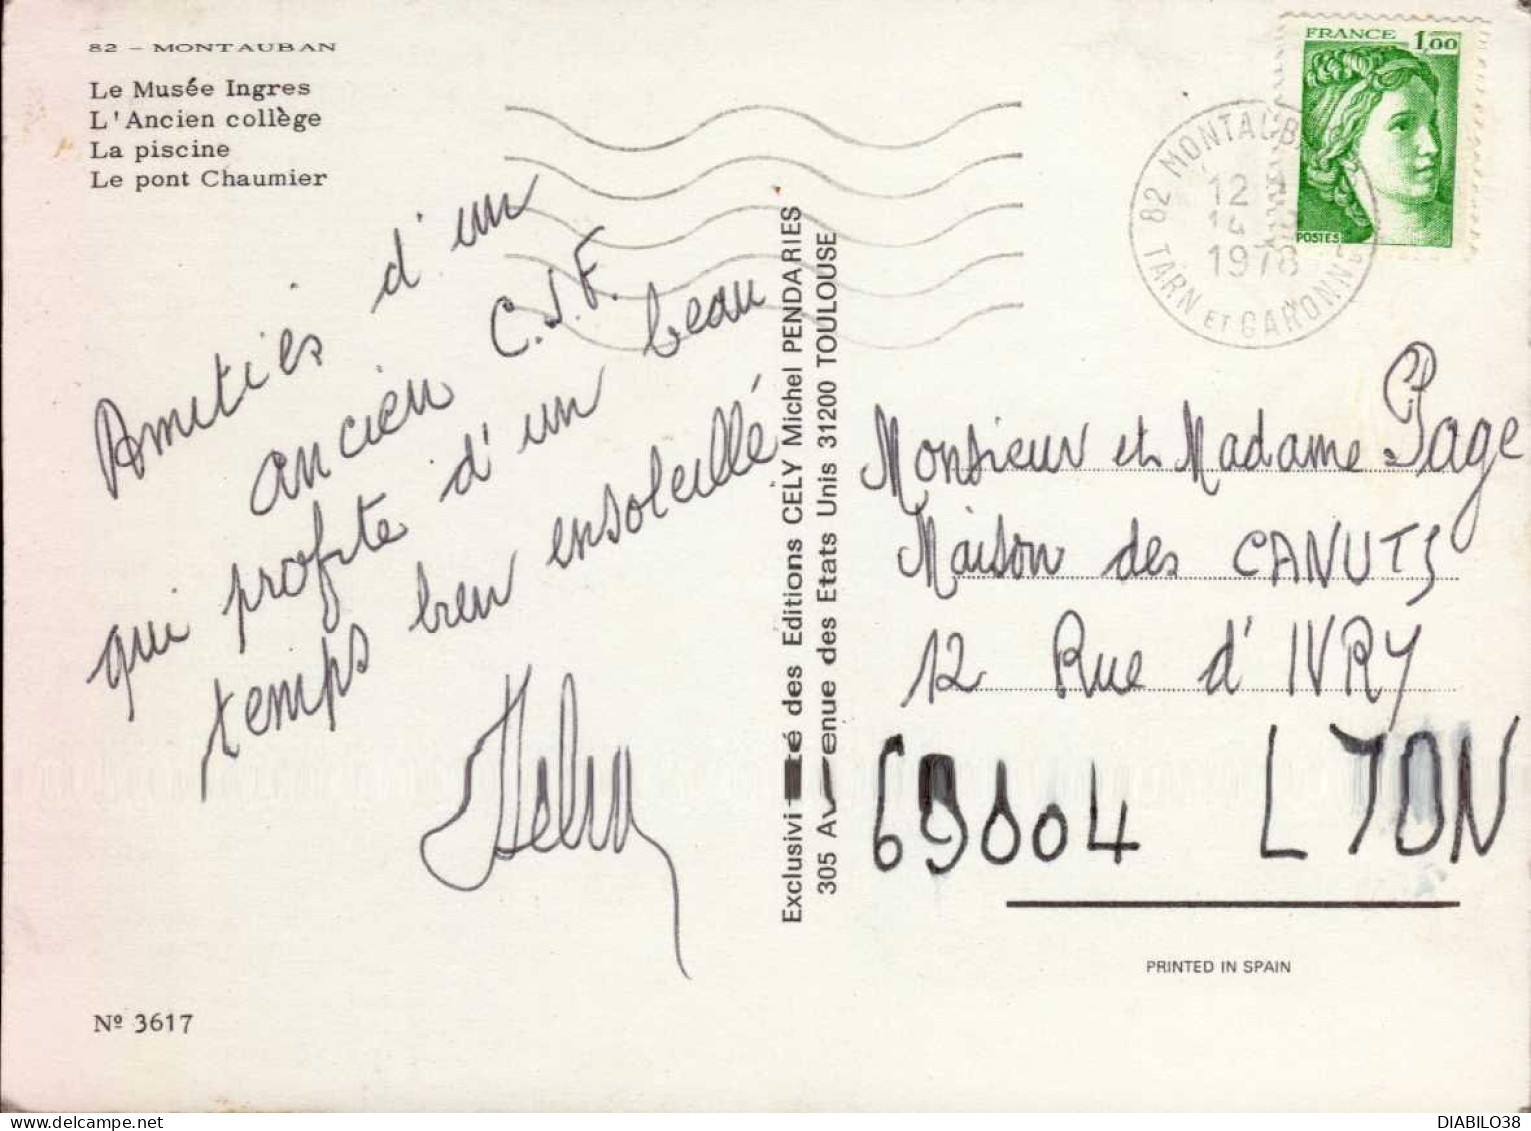 82 – MONTAUBAN
Le Musée Ingres
L'Ancien collège
La piscine
Le pont Chaumier
Amitiés d'un
ancien C.J.F.
qui profite d'un beau
temps bien ensoleillé
Nº 3617
des Editions CELY Michel PENDARIES
305 des Etats Unis 31200 TOULOUSE
FRANCE 1,00
POSTES
82 MONTAUB
12
14
1978
TARN ET GARONNE
Monsieur et Madame Page
Maison des CANUTS
12 Rue d'IVRY
69004 LYON
PRINTED IN SPAIN
DIABILO38